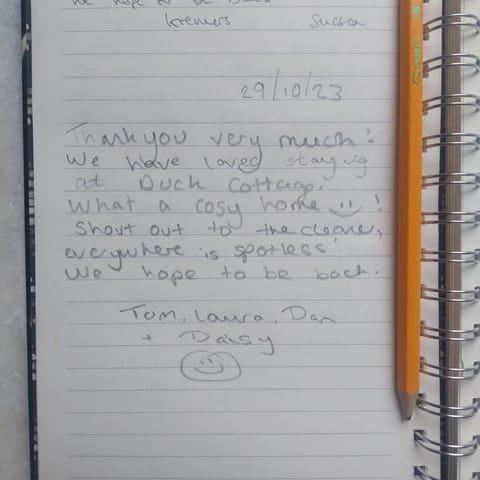 we hope to be back
Kremers Sussex
29/10/23
Thank you very much!
We have loved staying
at Duck Cottage.
What a cosy home !
Shout out to the cleaner,
everywhere is spotless!
We hope to be back.
Tom, Laura, Dan
+ Daisy